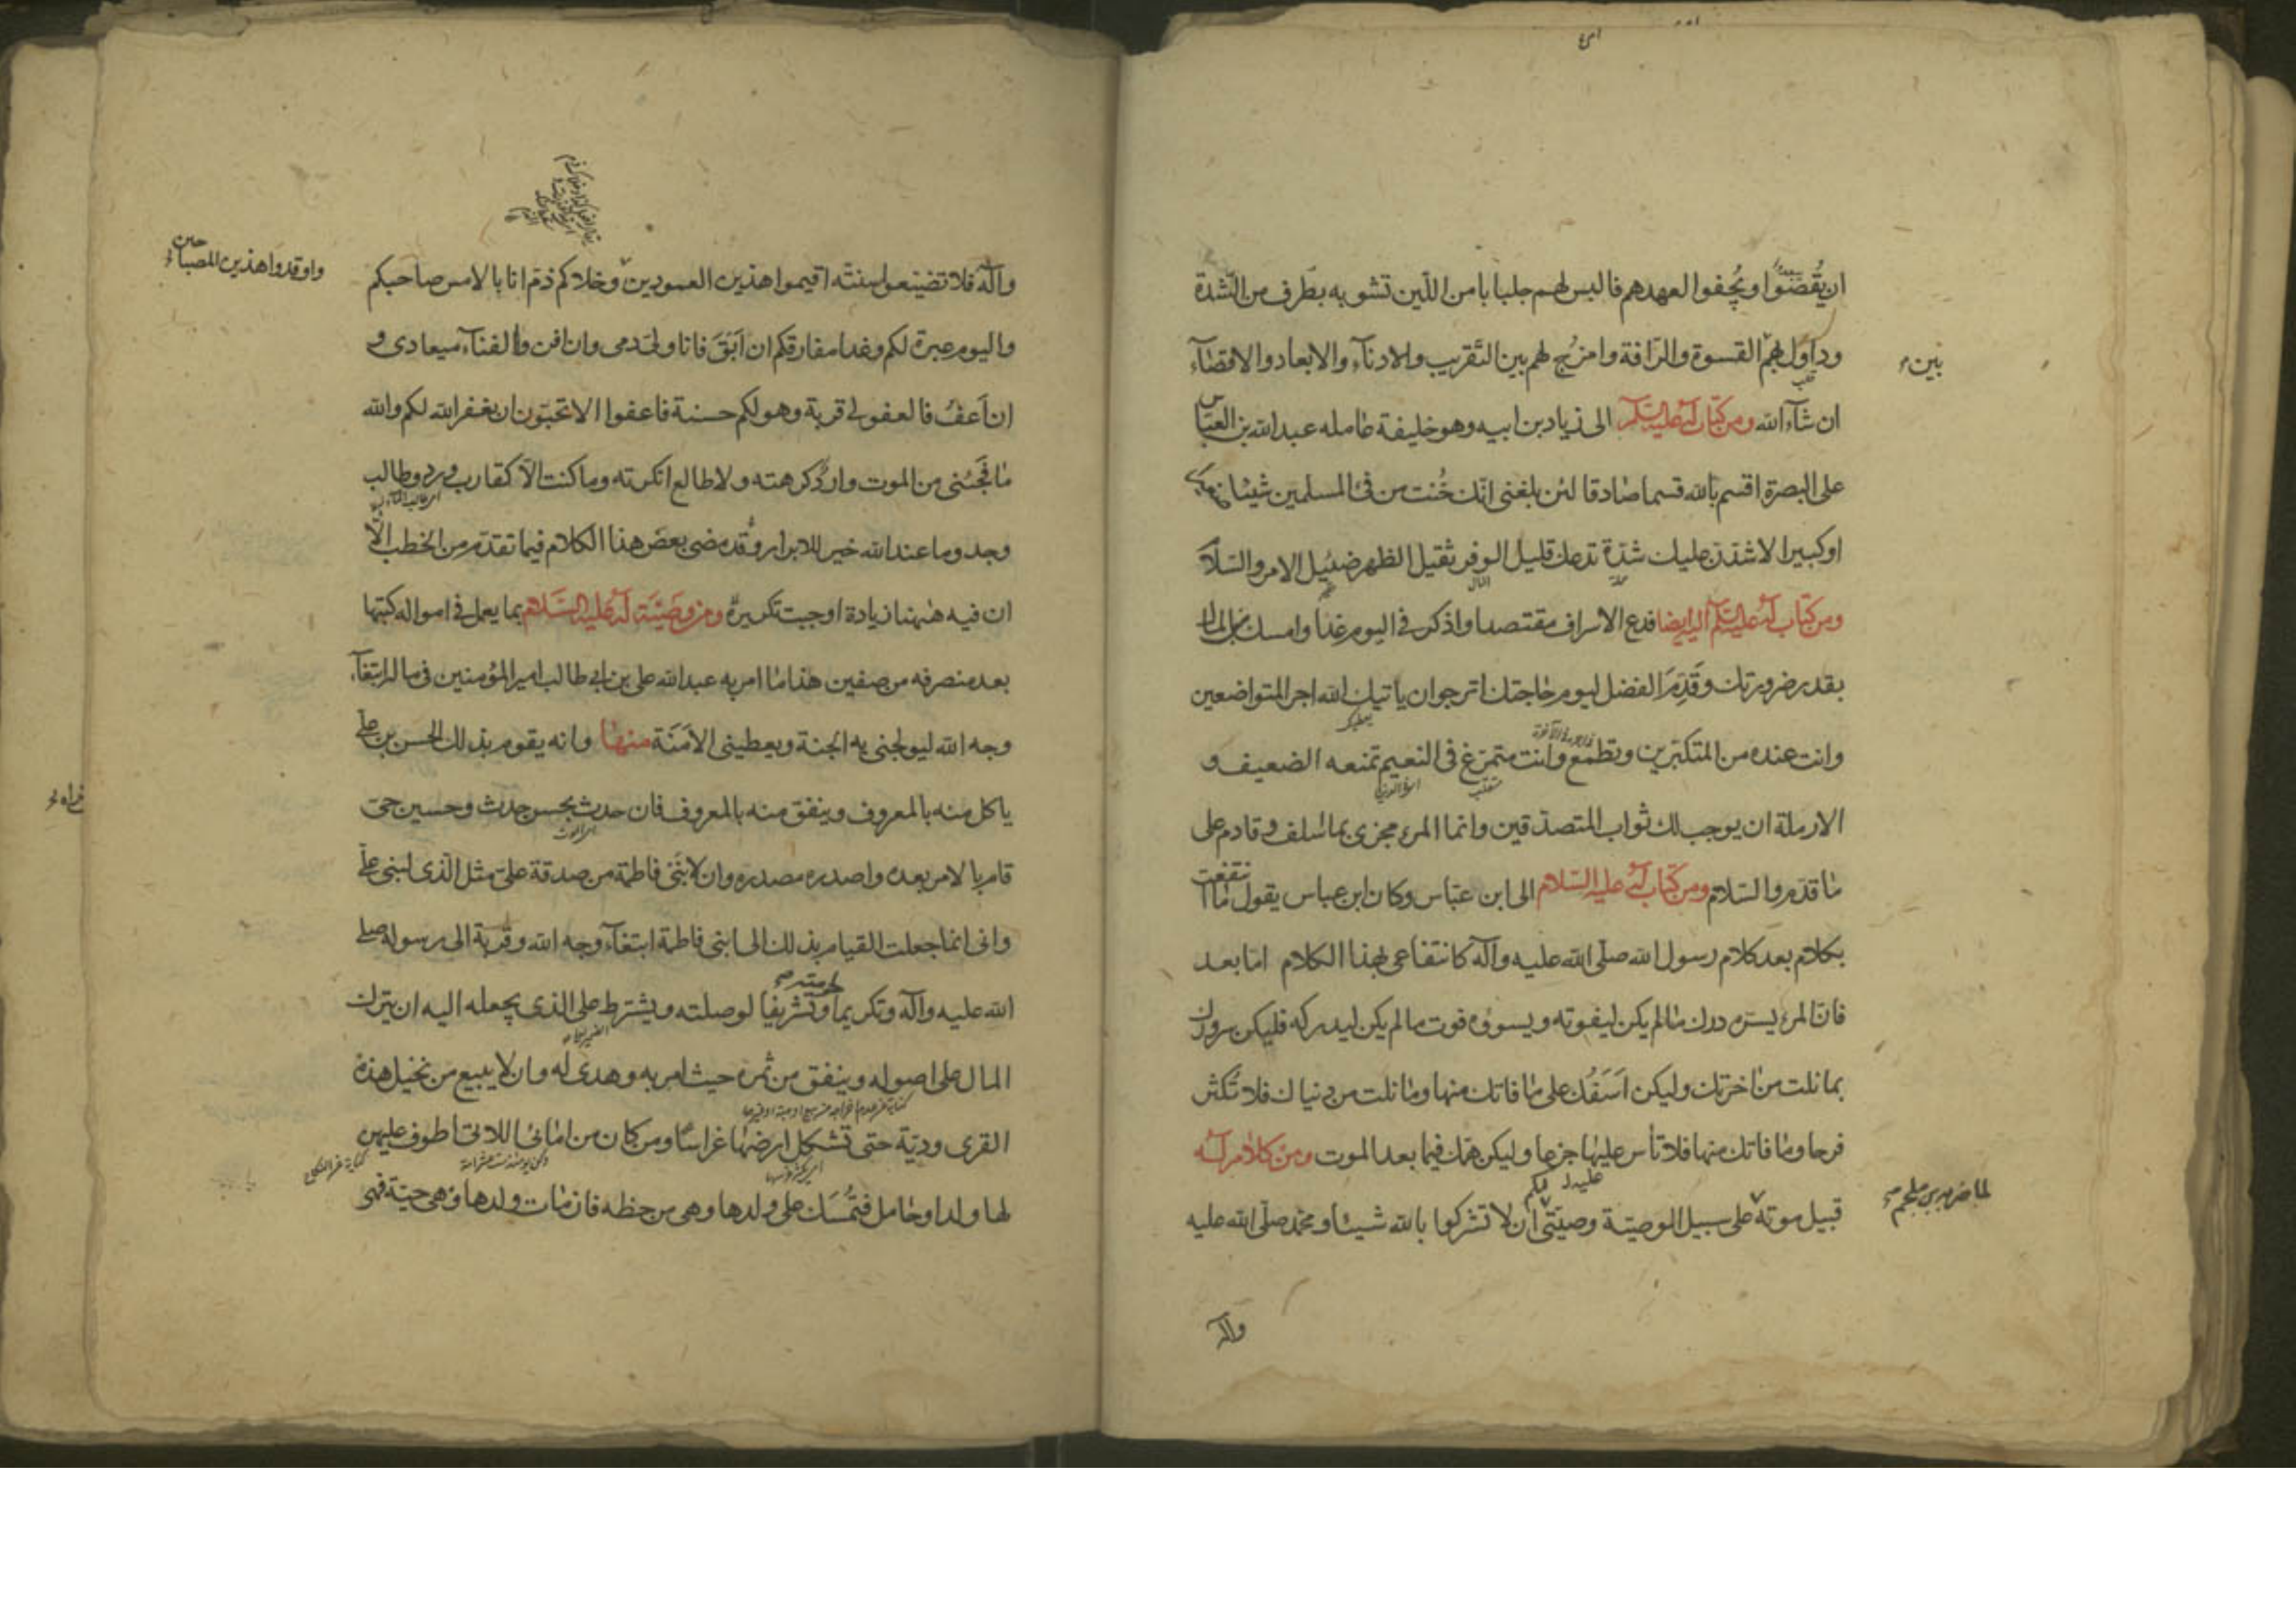 ان يُقصَوا ويُجفوا لعهدهم فالبس لهم جلبابا من اللين تشوبه بطرف من الشدة
وداول لهم القسوة والرافة وامزج لهم بين التقريب والادناء والابعاد والاقصاء
بين
ان شاء الله ومن كتاب له عليه السلام الى زياد بن ابيه وهو خليفة عامله عبد الله بن العباس
على البصرة اقسم بالله قسما صادقا لئن بلغنى انك خُنت من فئ المسلمين شيئا
او كبيرا لاشدن عليك شدّة تدعك قليل الوفر ثقيل الظهر ضئيل الامر والسلام
ومن كتاب له عليه السلام اليه ايضا فدع الاسراف مقتصدا واذكر فى اليوم غدا وامسك من المال
بقدر ضرورتك وقَدِّمِ الفضل ليوم حاجتك اترجو ان ياتيك الله اجر المتواضعين
وانت عنده من المتكبرين وتطمع وانت متمرغ فى النعيم تمنعه الضعيف و
الارملة ان يوجب لك ثواب المتصدقين وانما المرء مجزى بما سلف وقادم على
ما قدم والسلام ومن كتاب له عليه السلام الى ابن عباس وكان ابن عباس يقول ما انتفعت
بكلام بعد كلام رسول الله صلى الله عليه وآله كانتفاعى بهذا الكلام اما بعد
فان المرء يسره درك ما لم يكن ليفوته ويسوؤه فوت ما لم يكن ليدركه فليكن سرورك
بما نلت من اخرتك وليكن اَسَفُك على ما فاتك منها وما نلت من دنياك فلا تُكثر
فرحا وما فاتك منها فلا تأس عليها جزعا وليكن همك فيما بعد الموت ومن كلام له
عليه لكم
قبيل موته على سبيل الوصية وصيتى ان لا تشركوا بالله شيئا ومحمد صلى الله عليه
لما ضربه بن ملجم
واله
وآله فلا تضيعوا سنته اقيموا هذين العمودين وخلاكم ذم انا بالامس صاحبكم
واوقدوا هذين المصباحين
واليوم عبرة لكم وغدا مفارقكم ان ابق فانا ولى دمى وان افن فالفناء ميعادى و
ان اَعفُ فالعفو لى قربة وهو لكم حسنة فاعفوا الا تحبون ان يغفر الله لكم والله
ما فجئنى من الموت وارد كرهته ولا طالع انكرته وما كنت الا كقارب ورد وطالب
وجد وما عند الله خير للابرار وقد مضى بعض هذا الكلام فيما تقدم من الخطب الا
ان فيه هٰهنا زيادة اوجبت تكريره ومن وصية له عليه السلام بما يعمل فى امواله كتبها
بعد منصرفه من صفين هذا ما امر به عبد الله على بن ابى طالب امير المؤمنين فى ماله ابتغاء
وجه الله ليولجنى به الجنة ويعطينى الاَمَنَة منها وانه يقوم بذلك الحسن بن على
ياكل منه بالمعروف وينفق منه بالمعروف فان حدث بحسن حدث وحسين حى
قام بالامر بعده واصدره مصدره وان لابنَى فاطمة من صدقة على مثل الذى لبنى على
وانى انما جعلت القيام بذلك الى ابنى فاطمة ابتغاء وجه الله وقربة الى رسوله صلى
لحرمته
الله عليه وآله وتكريما وتشريفا لوصلته ويشترط على الذى يجعله اليه ان يترك
المال على اصوله وينفق من ثمره حيث امر به وهدى له وان لا يبيع من نخيل هذه
القرى وديّة حتى تشكل ارضها غراسا ومن كان من امائى اللاتى اطوف عليهن
لها ولد او حامل فتُمسَك على ولدها وهى من حظه فان مات ولدها وهى حية فهى